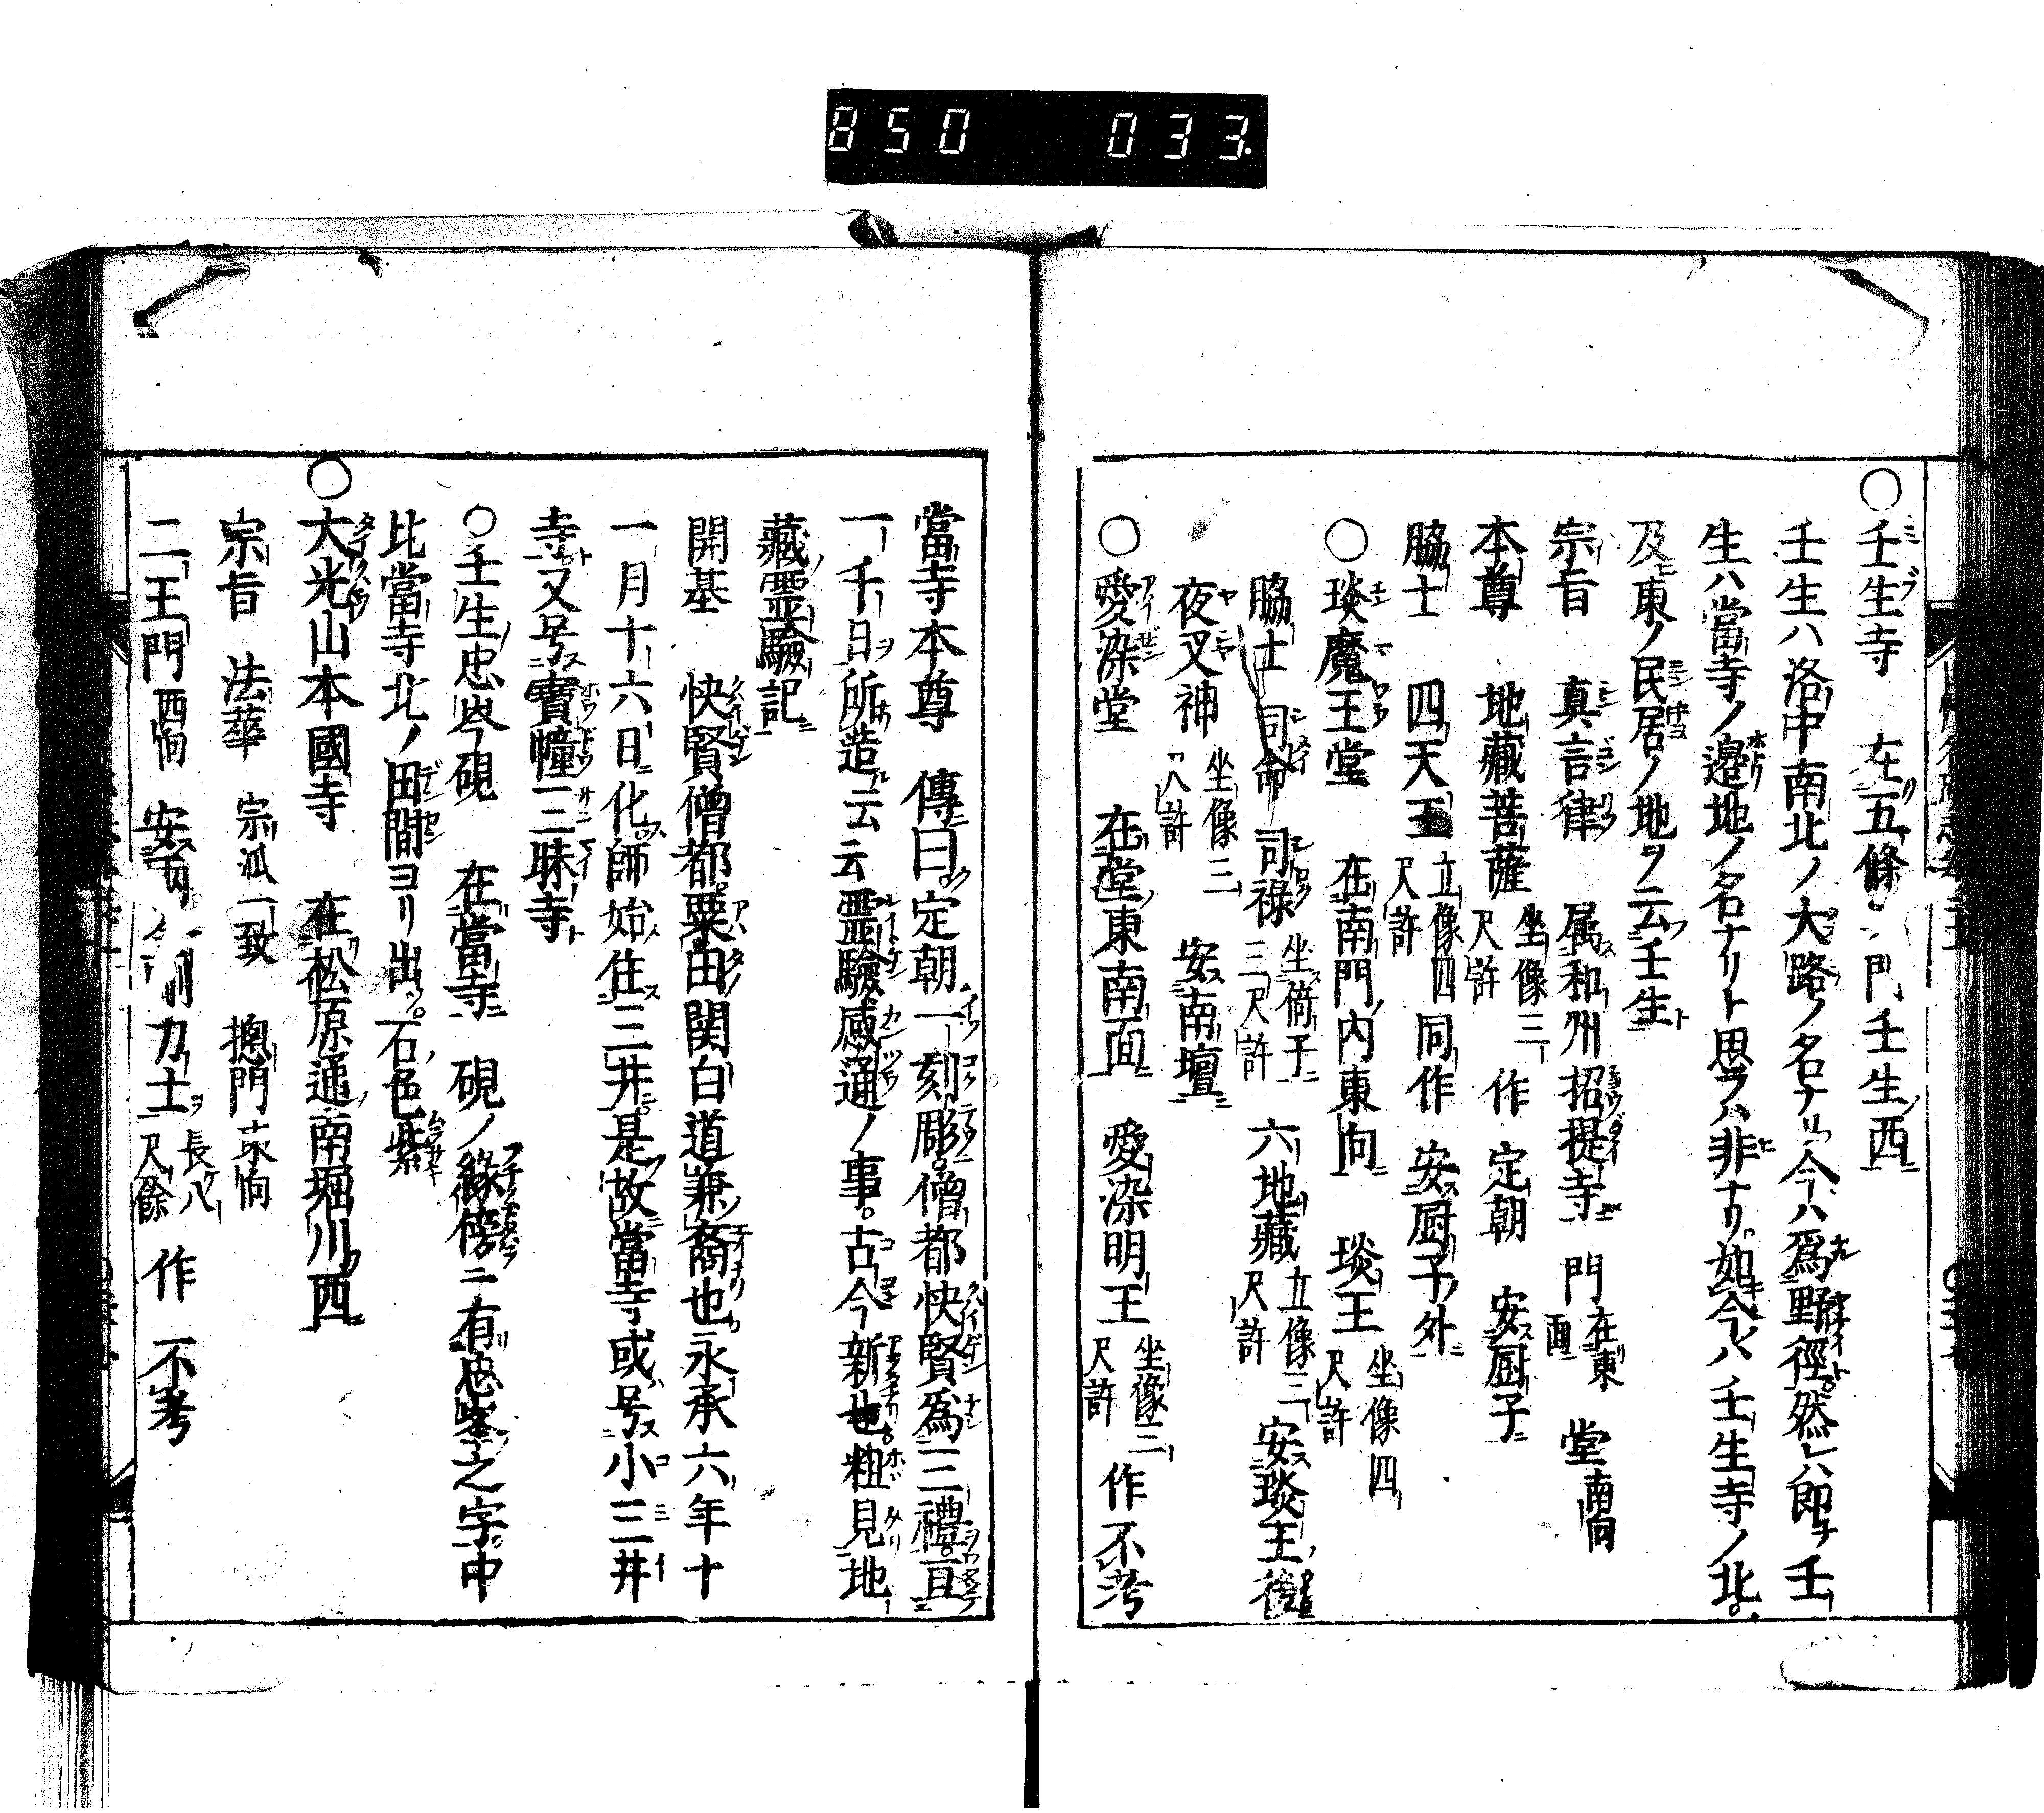 850 033.
○壬生寺 在五條 門壬生西
壬生ハ洛中南北ノ大路ノ名ナリ今ハ爲野徑然レハ卽チ壬
生ハ當寺ノ邉地ノ名ナリト思フハ非ナリ如今ハ壬生寺ノ北
及東ノ民居ノ地ヲ云壬生
宗旨 真言律 属和州招提寺 門在東面 堂南向
本尊 地藏菩薩 坐像三尺許 作 定朝 安厨子
脇士 四天王 立像四尺許 同作 安厨子ノ外
○琰魔王堂 在南門內東向 琰王 坐像四尺許
脇士 司命 司祿 坐倚子三尺許 六地藏 立像三尺許 安琰王後
夜叉神 坐像三尺許 安南壇
○愛染堂 在堂東南面 愛染明王 坐像三尺許 作不考
當寺本尊 傳曰定朝一刻彫僧都快賢爲三禮且
一千日所造云云靈驗感通ノ事古今新也粗見地
藏靈驗記
開基 快賢僧都粟田関白道兼裔也永承六年十
一月十六日化師始住三井是故當寺或号小三井
寺又号寶幢三昧寺
○壬生忠岑硯 在當寺 硯ノ緣傍ニ有忠岑之字中
比當寺北ノ田間ヨリ出石色紫
○大光山本國寺 在松原通南堀川西
宗旨 法華 宗派一致 摠門東向
二王門西向 安 力士長八尺餘 作 不考